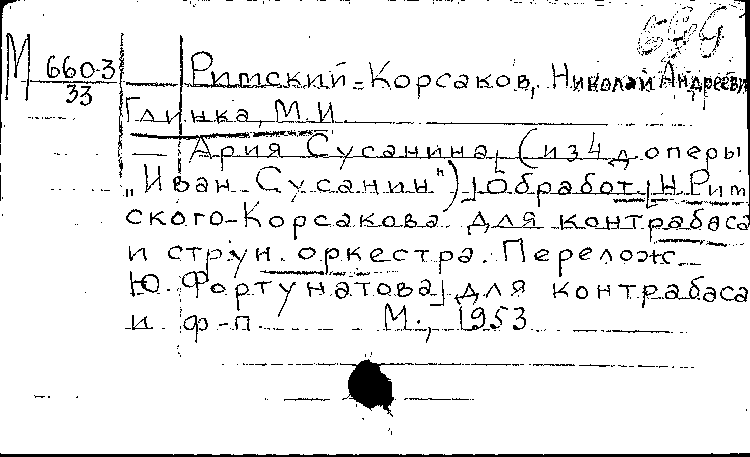 М 660-3
33
Римский-Корсаков, Николай Андрееви
Глинка, М.И.
— Ария Сусанина, (из 4 д оперы
„Иван Сусанин") Обработ. Н. Рим
ского-Корсакова для контрабаса
и струн. оркестра. Перелож
Ю. Фортунатова, для контрабаса
и ф-п. М., 1953